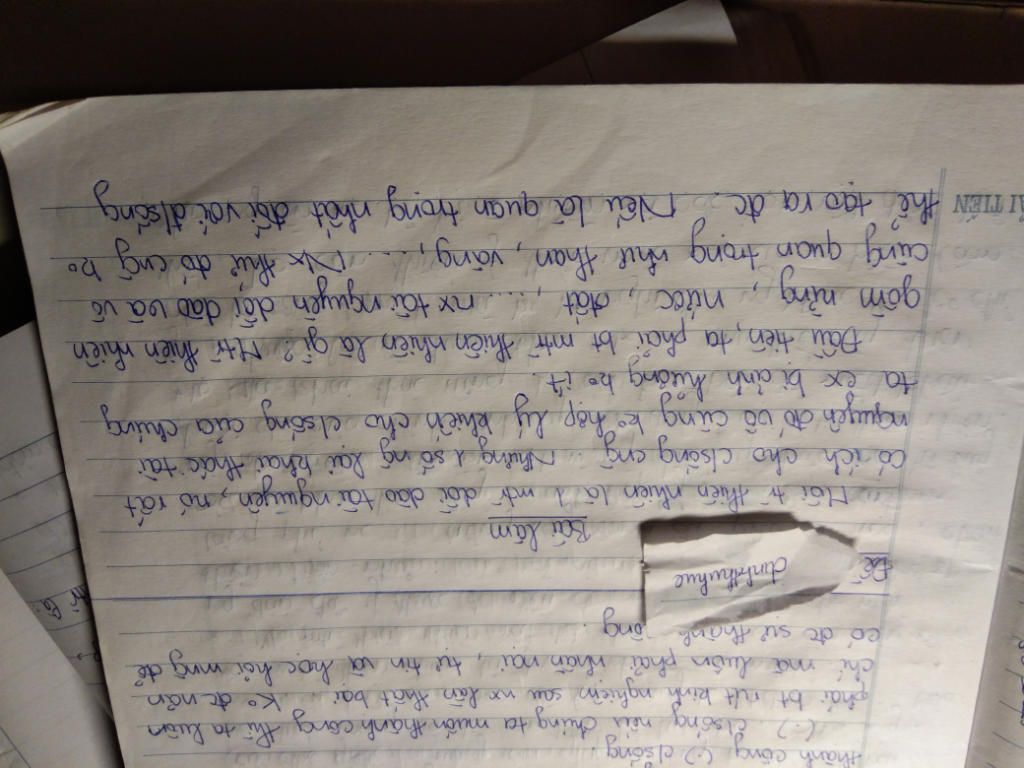 thành công (-) c/sống.
(-) c/sống nếu chúng ta muốn thành công thì ta luôn
phải bt rút kinh nghiệm sau nx lần thất bại. K° đc nản
chí mà luôn phải nhẫn nại, tự tin và học hỏi mng để
có đc sự thành công.
Đề
dinhthuhue
Bài làm
Môi tr thiên nhiên là 1 mtr dồi dào tài nguyên, nó rất
có ích cho c/sống cng. Nhưng 1 số ng lại khai thác tài
nguyên đó vô cùng k° hợp lý khiến cho c/sống của chúng
ta ex bị ảnh hưởng k° ít.
Đầu tiên, ta phải bt mtr thiên nhiên là gì? Mtr thiên nhiên
gồm nắng, nước, đất, ... nx tài nguyên dồi dào và vô
cùng quan trọng như than, vàng, ... Nx thứ đó cng k°
thể tạo ra đc. Nếu là quan trọng nhất đối với đ/sống
ẢI TIẾN